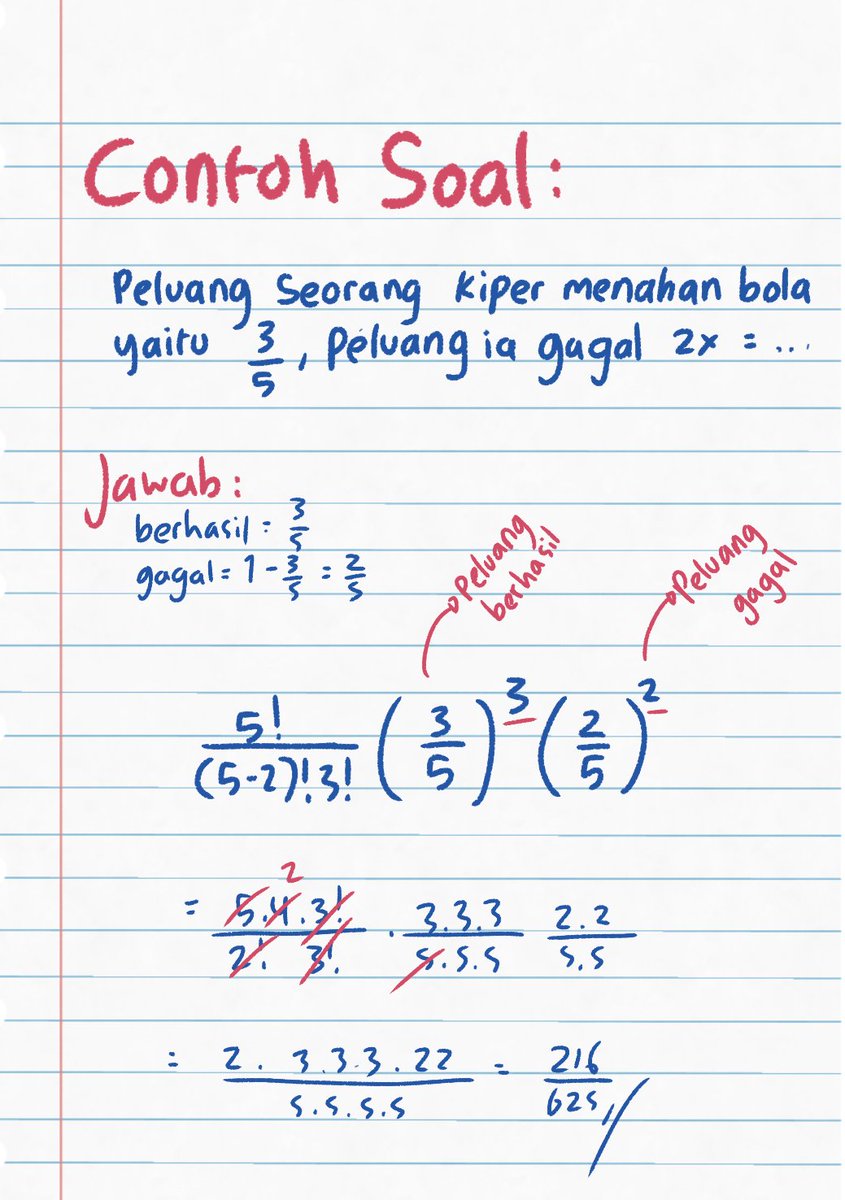 Contoh Soal:
Peluang seorang kiper menahan bola
yaitu 3/5, Peluang ia gagal 2x = ...
Jawab:
berhasil = 3/5
gagal = 1 - 3/5 = 2/5
Peluang berhasil
Peluang gagal
5!/(5-2)!3! (3/5)^3 (2/5)^2
2
= 5.4.3!/2! 3! . 3.3.3/5.5.5 2.2/5.5
= 2. 3.3.3.22/5.5.5.5 = 216/625